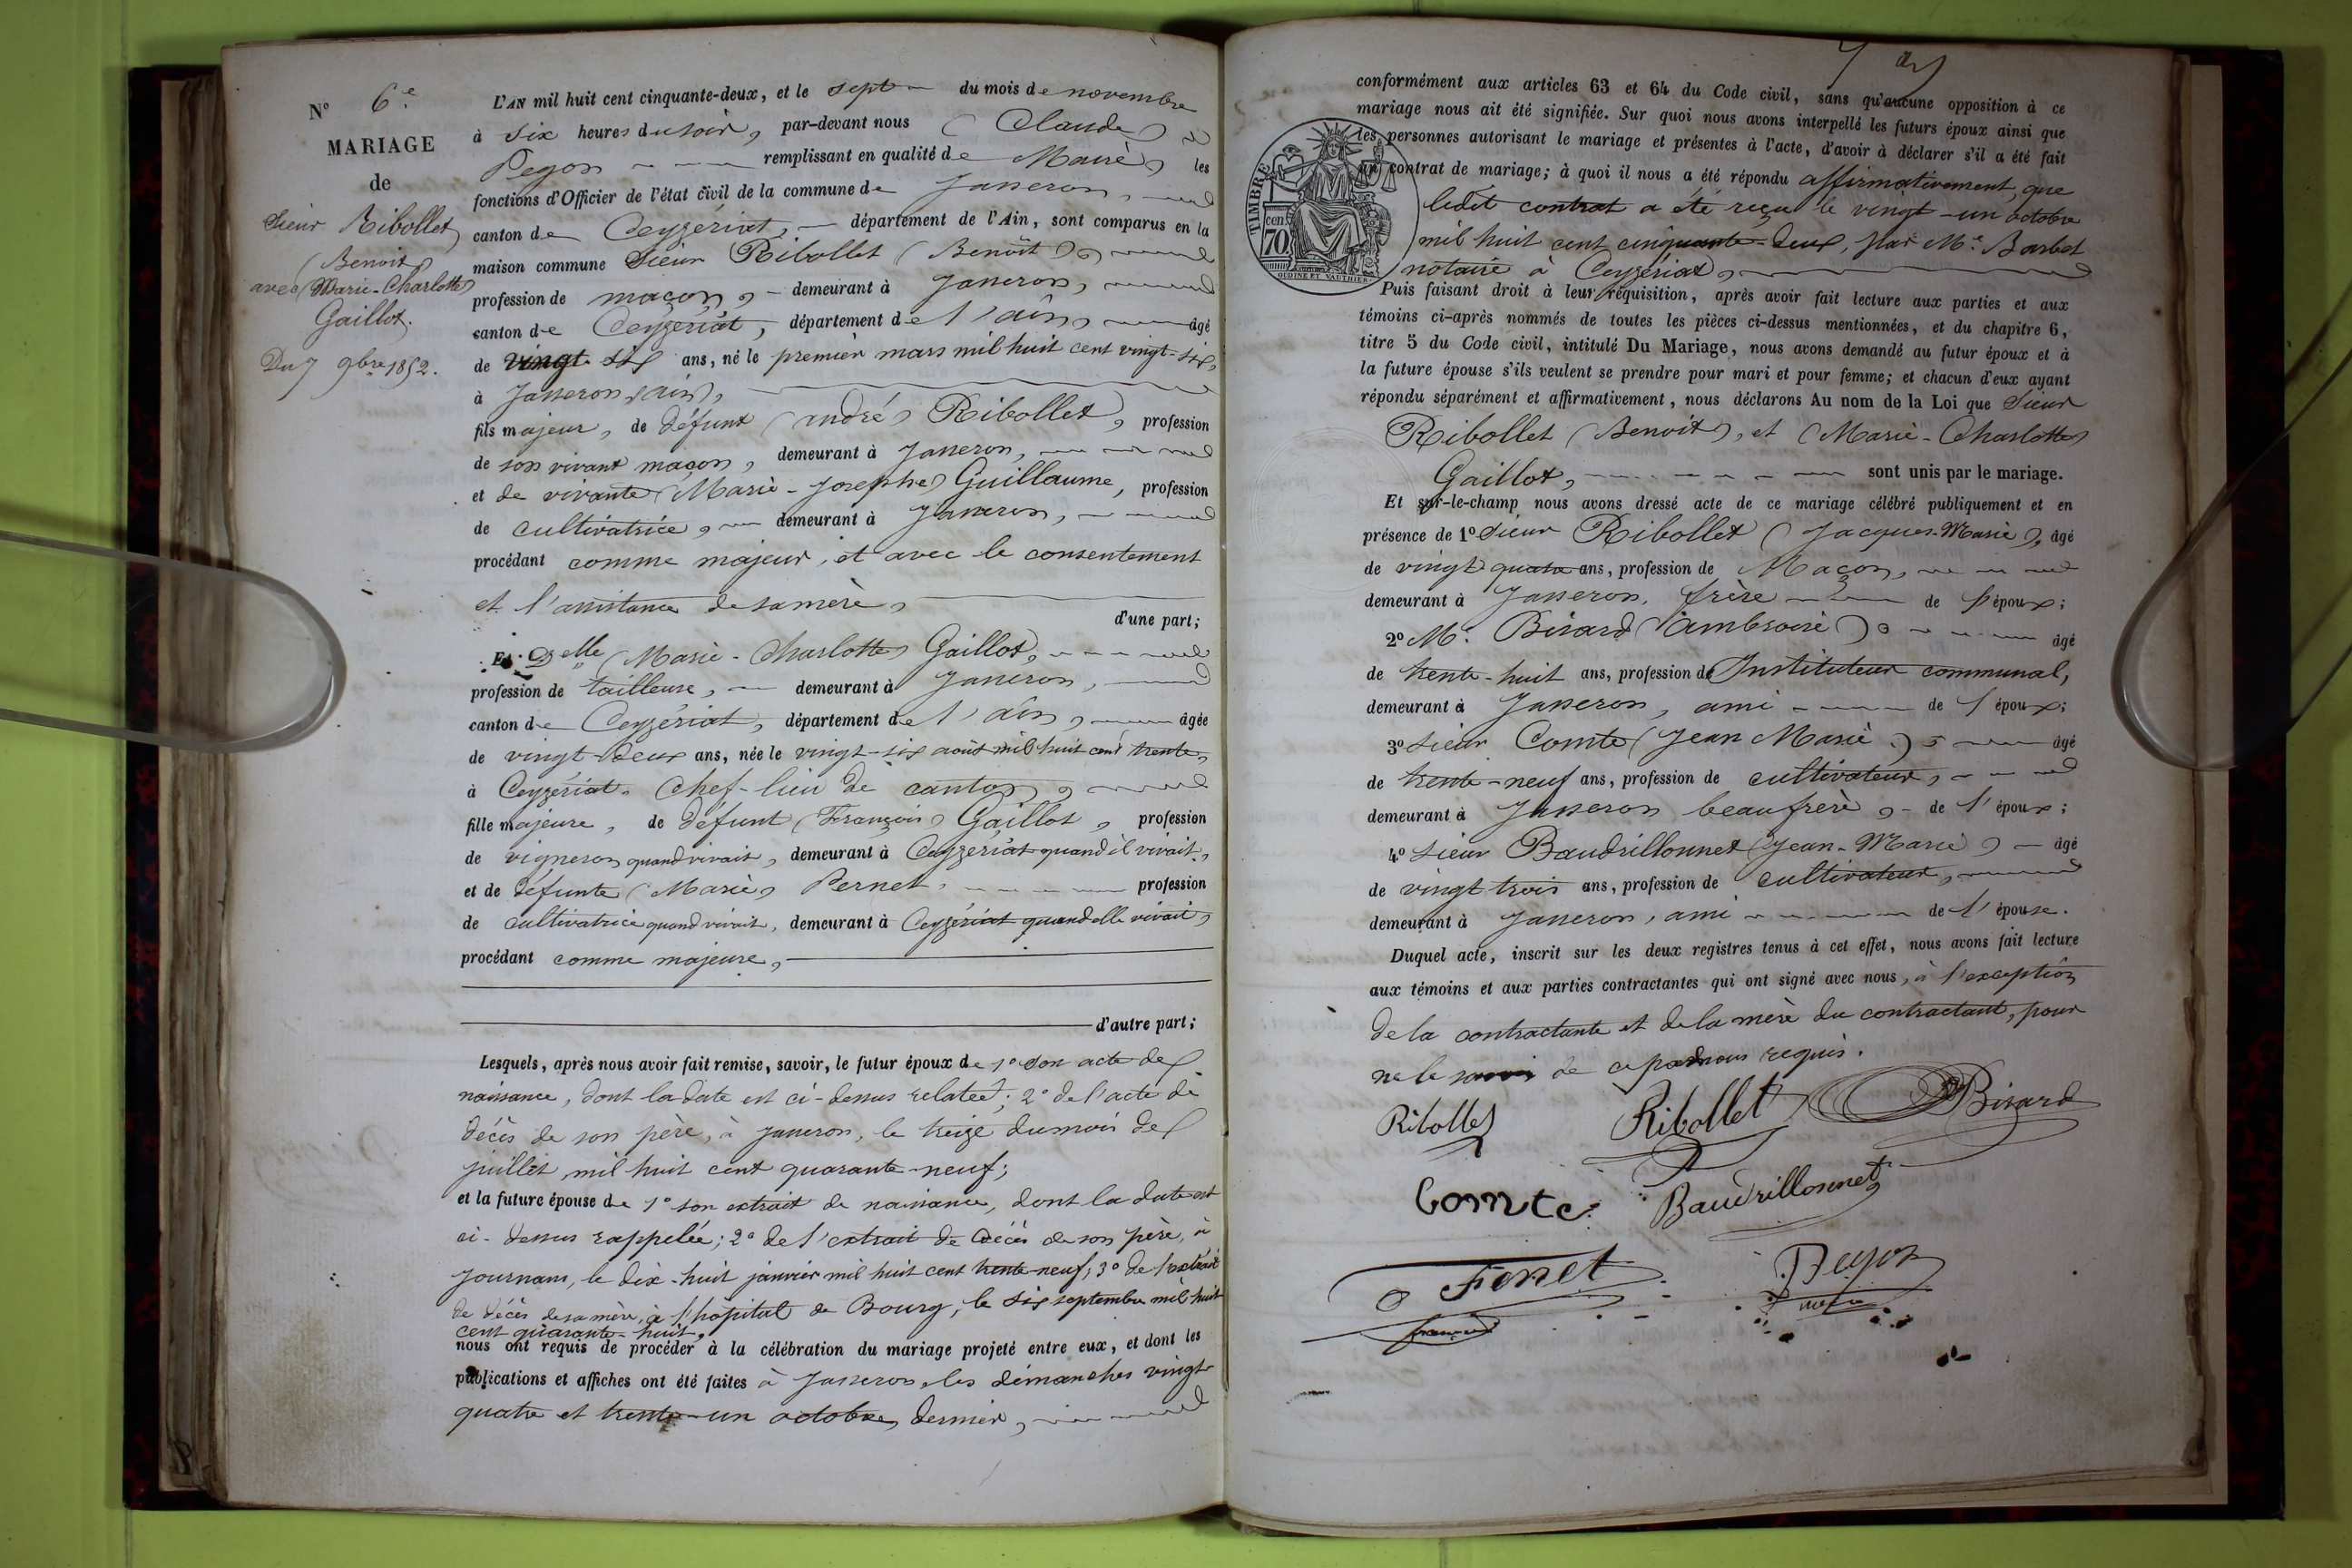 N° 6e
MARIAGE
de
Sieur Ribollet
(Benoit)
avec (Marie-Charlotte)
Gaillot.
Du 7 9bre 1852.
L'AN mil huit cent cinquante-deux, et le sept du mois de novembre
à six heures du soir, par-devant nous (Claude)
Pegon remplissant en qualité de Maire, les
fonctions d'Officier de l'état civil de la commune de Jasseron,
canton de Ceyzériat, département de l'Ain, sont comparus en la
maison commune Sieur Ribollet (Benoît),
profession de maçon, demeurant à Jasseron,
canton de Ceyzériat, département de l'ain, âgé
de vingt-six ans, né le premier mars mil huit cent vingt-six,
à Jasseron (ain),
fils majeur, de défunt (andré) Ribollet, profession
de son vivant maçon, demeurant à Jasseron,
et de vivante (Marie-Josephe) Guillaume, profession
de cultivatrice, demeurant à Jasseron,
procédant comme majeur, et avec le consentement
et l'assistance de sa mère,
d'une part;
Et Delle (Marie-Charlotte) Gaillot,
profession de tailleuse, demeurant à Jasseron,
canton de Ceyzériat, département de l'ain, âgée
de vingt-deux ans, née le vingt-six août mil huit cent trente,
à Ceyzériat, chef-lieu de canton,
fille majeure, de défunt (François) Gaillot, profession
de vigneron quand vivait, demeurant à Ceyzériat quand il vivait,
et de défunte (Marie) Pernet, profession
de cultivatrice quand vivait, demeurant à Ceyzériat quand elle vivait,
procédant comme majeure,
d'autre part;
Lesquels, après nous avoir fait remise, savoir, le futur époux de 1° son acte de
naissance, dont la date est ci-dessus relatée; 2° de l'acte de
décès de son père, à Jasseron, le treize du mois de
juillet mil huit cent quarante-neuf;
et la future épouse de 1° son extrait de naissance, dont la date est
ci-dessus rappelée; 2° de l'extrait de décès de son père, à
Journans, le dix-huit janvier mil huit cent trente-neuf; 3° de l'extrait
de décès de sa mère, à l'hôpital de Bourg, le six septembre mil huit
cent quarante-huit,
nous ont requis de procéder à la célébration du mariage projeté entre eux, et dont les
publications et affiches ont été faites à Jasseron, les dimanches vingt-
quatre et trente-un octobre dernier,
conformément aux articles 63 et 64 du Code civil, sans qu'aucune opposition à ce
mariage nous ait été signifiée. Sur quoi nous avons interpellé les futurs époux ainsi que
les personnes autorisant le mariage et présentes à l'acte, d'avoir à déclarer s'il a été fait
un contrat de mariage; à quoi il nous a été répondu affirmativement, que
ledit contrat a été reçu le vingt-un octobre
mil huit cent cinquante-deux, par Me Barbet
notaire à Ceyzériat,
TIMBRE
cen 70
OUDINE ET VAUTHIER
Puis faisant droit à leur réquisition, après avoir fait lecture aux parties et aux
témoins ci-après nommés de toutes les pièces ci-dessus mentionnées, et du chapitre 6,
titre 5 du Code civil, intitulé Du Mariage, nous avons demandé au futur époux et à
la future épouse s'ils veulent se prendre pour mari et pour femme; et chacun d'eux ayant
répondu séparément et affirmativement, nous déclarons Au nom de la Loi que Sieur
Ribollet (Benoît), et (Marie-Charlotte)
Gaillot, sont unis par le mariage.
Et sur-le-champ nous avons dressé acte de ce mariage célébré publiquement et en
présence de 1° Sieur Ribollet (Jacques-Marie), âgé
de vingt quatre ans, profession de Maçon,
demeurant à Jasseron, frère de l'époux;
2° Mr Birard (ambroise), âgé
de trente-huit ans, profession de Instituteur communal,
demeurant à Jasseron, ami de l'époux;
3° Sieur Comte (Jean Marie), âgé
de trente-neuf ans, profession de cultivateur,
demeurant à Jasseron beaufrère, de l'époux;
4° Sieur Baudrillonnet (Jean-Marie) âgé
de vingt trois ans, profession de cultivateur,
demeurant à Jasseron, ami de l'épouse.
Duquel acte, inscrit sur les deux registres tenus à cet effet, nous avons fait lecture
aux témoins et aux parties contractantes qui ont signé avec nous, à l'exception
de la contractante et de la mère du contractant, pour
ne le savoir de ce par nous requis.
Ribollet Ribollet Birard
Comte Baudrillonnet
Fenet Pegon
maire